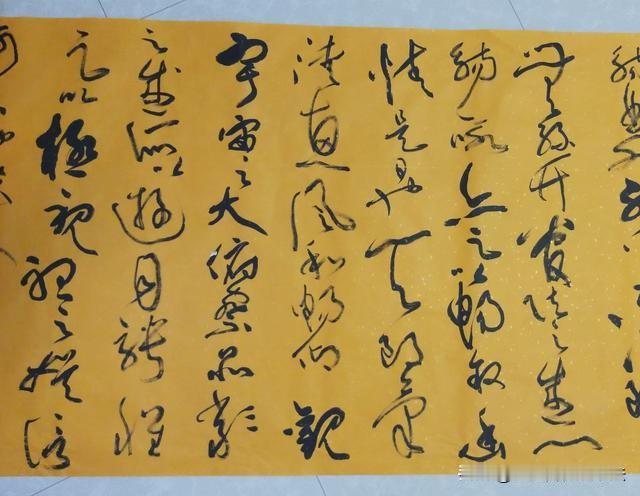 雖無絲竹管弦之盛一
觴一詠亦足以暢叙幽
情是日也天朗氣
清惠風和暢仰觀
宇宙之大俯察品類
之盛所以遊目騁懷
足以極視聽之娛信